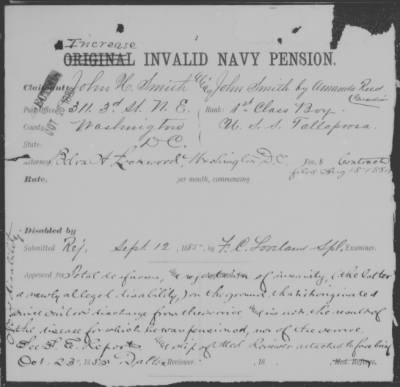 Increase
ORIGINAL INVALID NAVY PENSION.
Claimant, John H. Smith alias John Smith by Amanda Reed
Guardian
Post Office, 311. 3rd St. N. E. Rank: 1st Class Boy
County, Washington U. S. S. Tallapoosa.
State, D.C.
Attorney, Belva A. Lockwood Washington D.C. Fee, $ Contract
filed Aug 15 188
Rate, per month, commencing
Disabled by
Submitted Rej. Sept 12 1885 by F. C. Loveland Spl. Examiner.
Approved for Total deafness, & rejection of insanity, (the latter
a newly alleged disability,) on the ground, that it originated
since soldier's discharge from the service & is not the result of
the disease for which he was pensioned, nor of the service.
See S. E. report & slip of Med. Reviewer attached to firs brief
Oct. 23d 1885 Reviewer. , 18 Med. Referee.